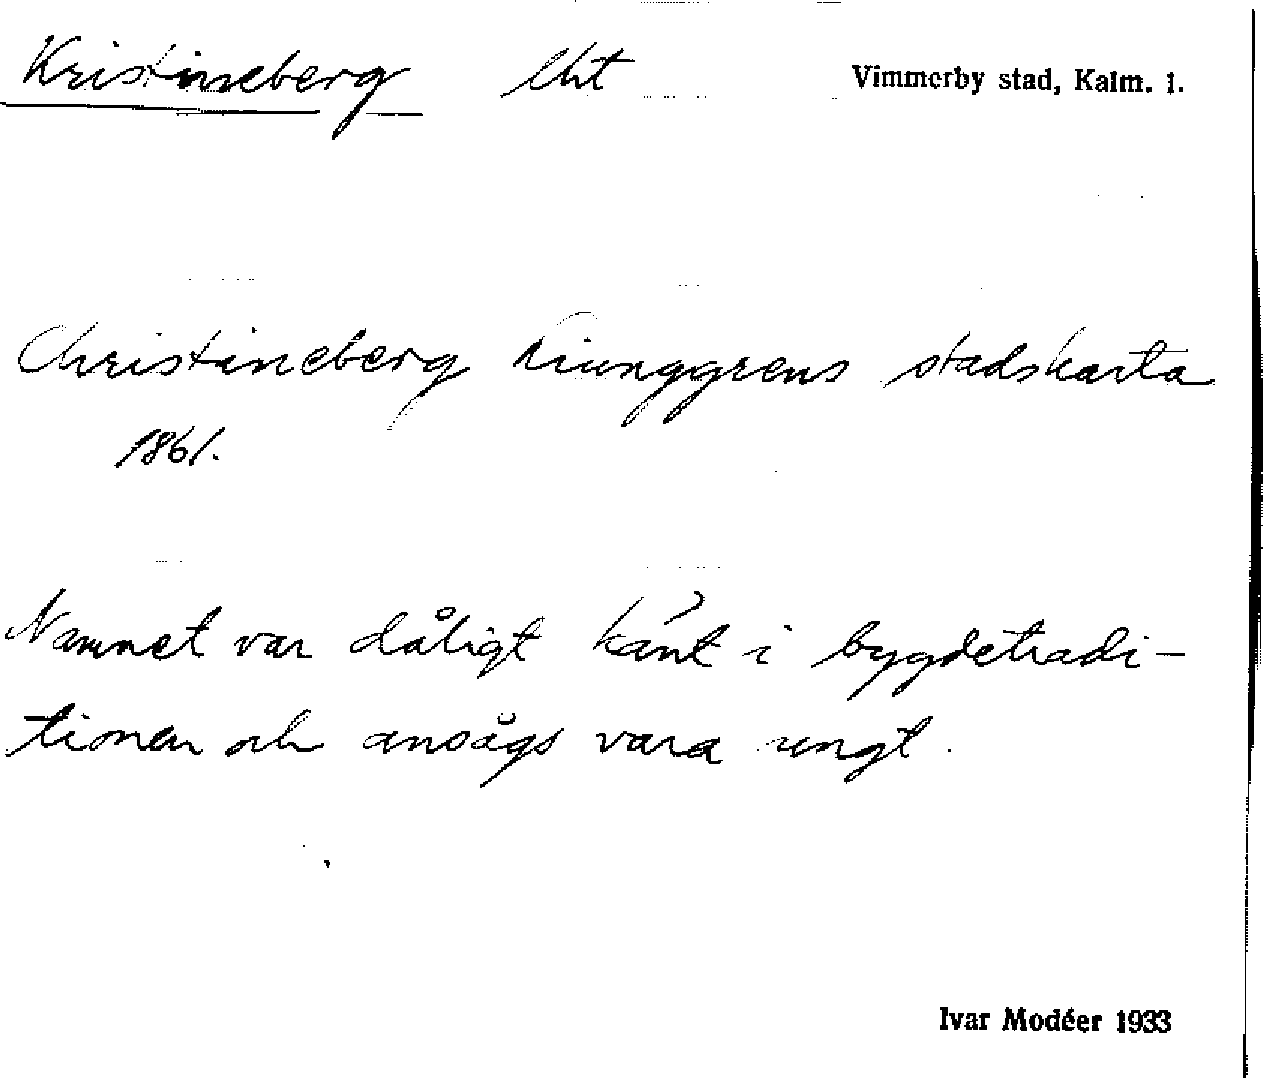 Kristineberg lht Vimmerby stad, Kalm. l.
Christineberg Liunggrens stadskarta
1861.
Namnet var dåligt känt i bygdetradi-
tionen och ansågs vara ungt.
Ivar Modéer 1933